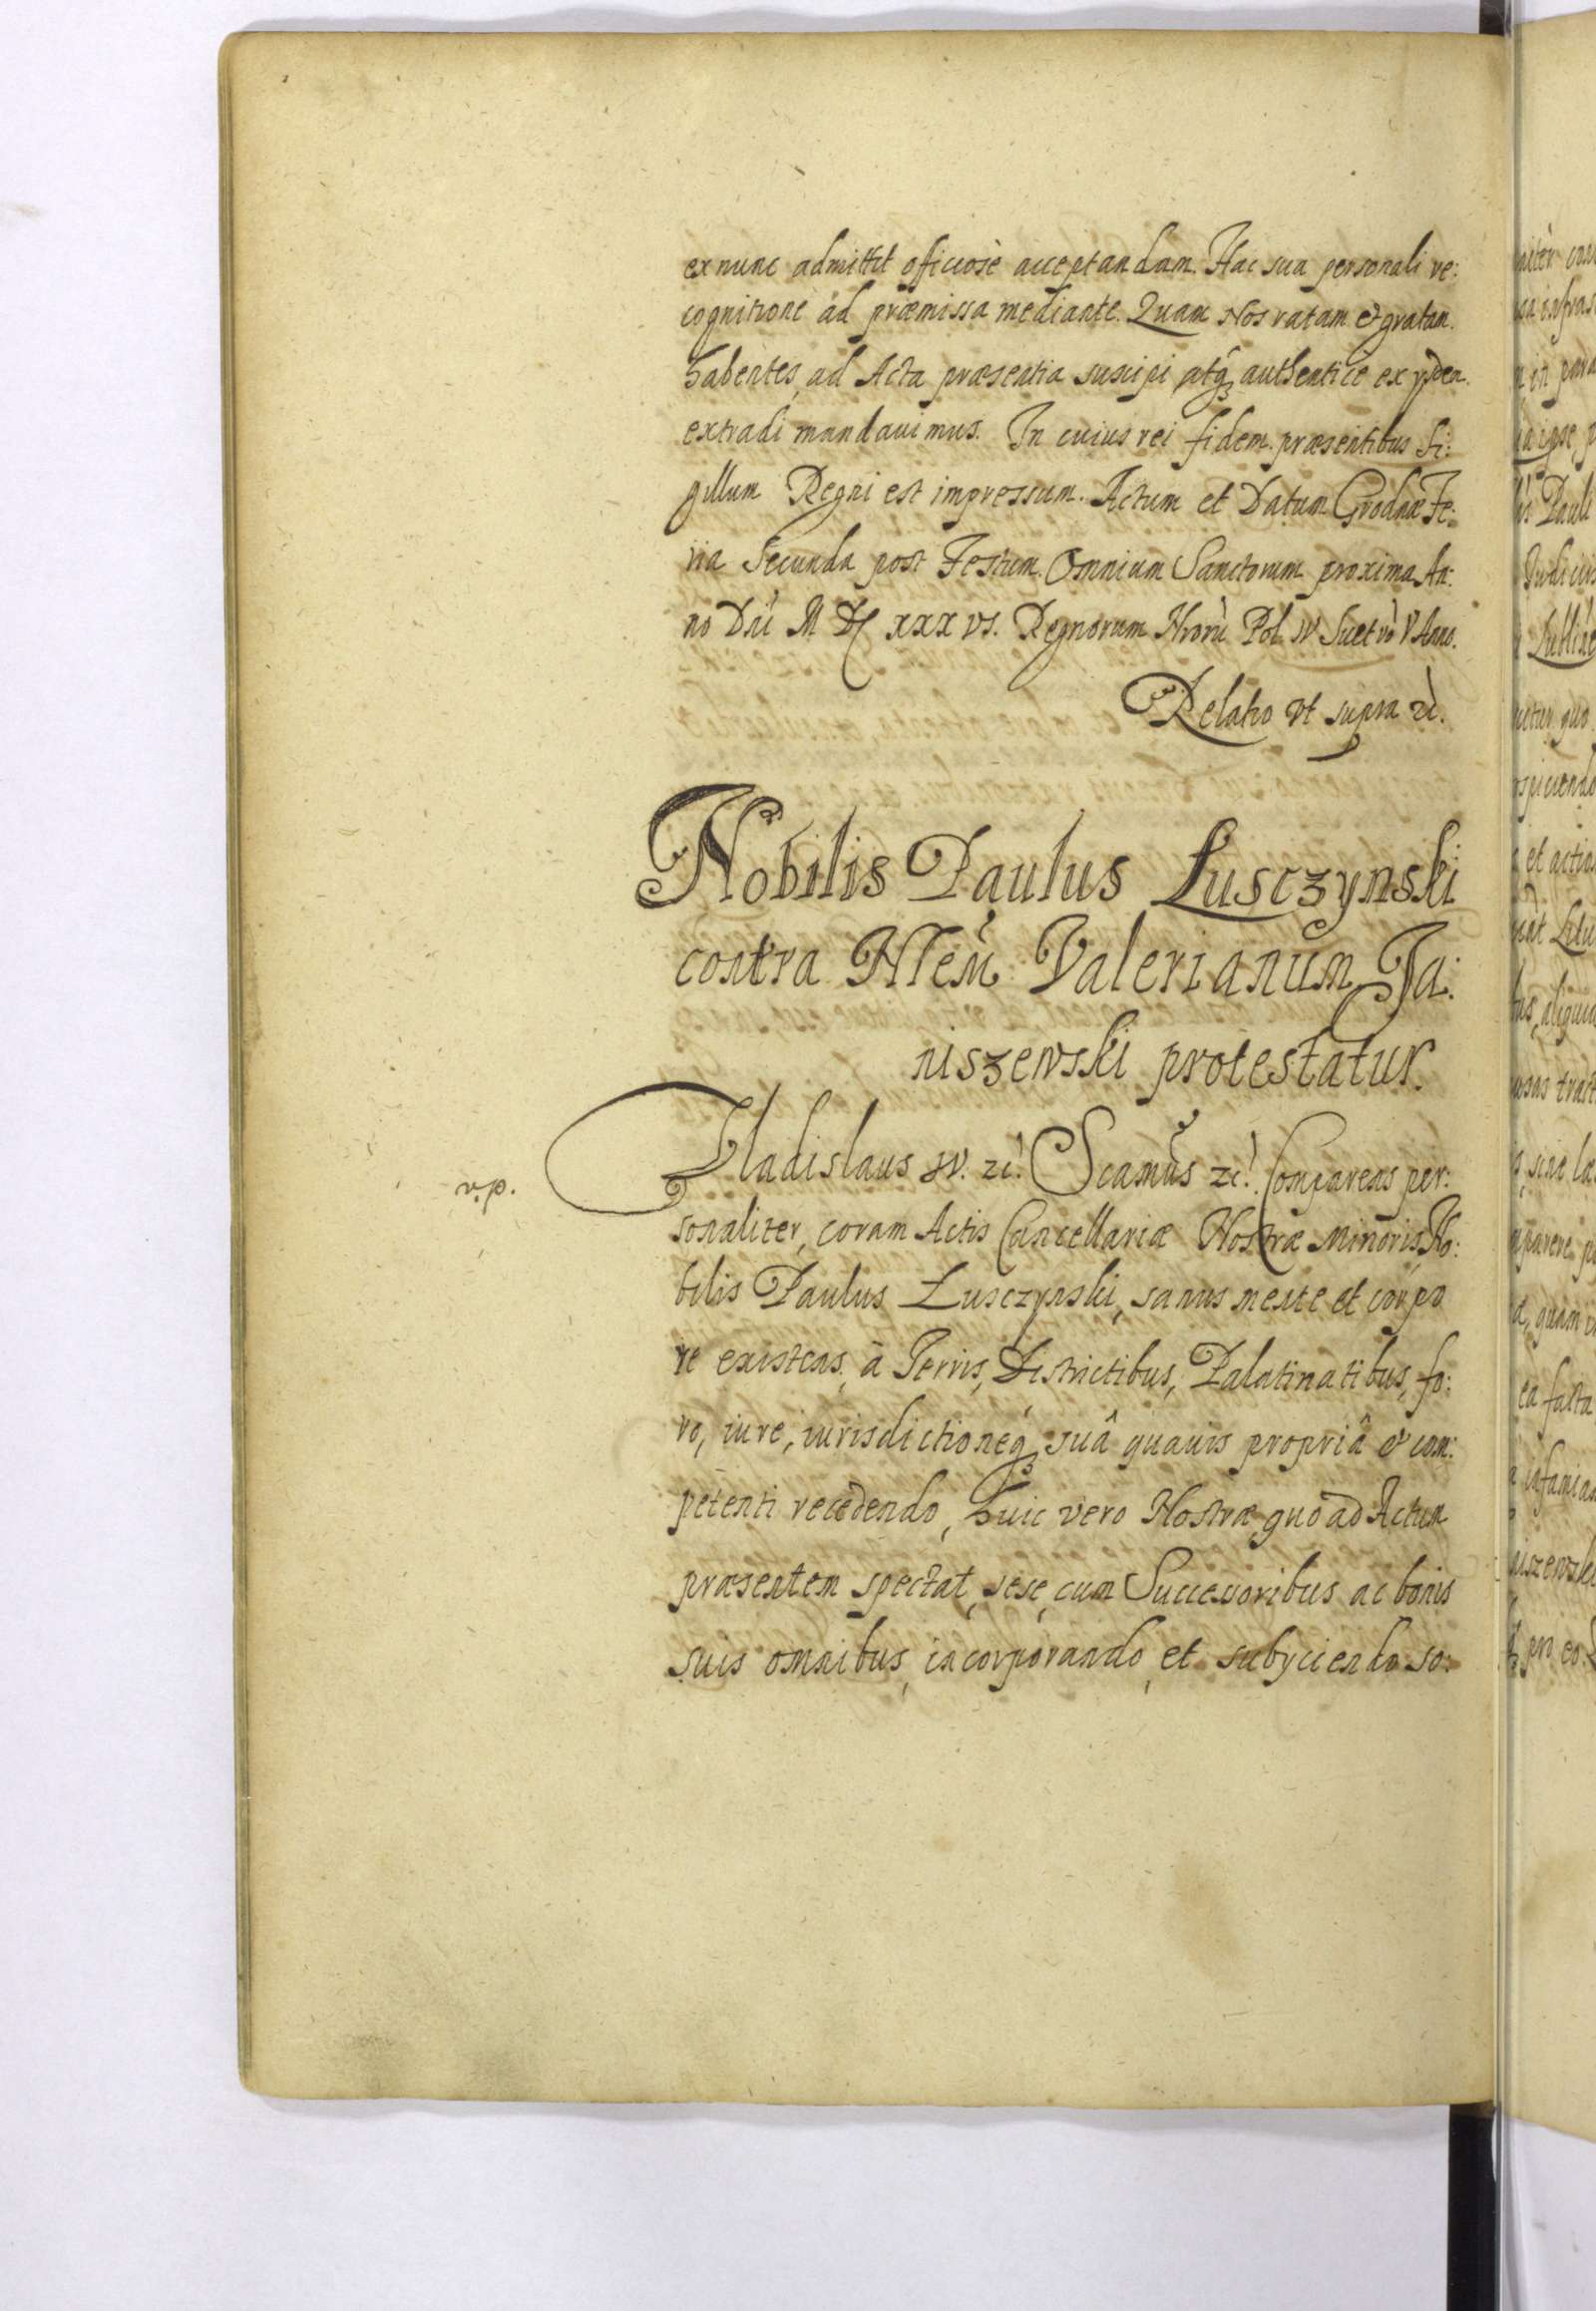 ex nunc admittit officiosè acceptandam. Hac sua personali re:
cognitione ad præmissa mediante. Quam Nos ratam et gratam
habentes, ad Acta præsentia suscipi atq; authentice ex ijsdem
extradi mandauimus. In cuius rei fidem præsentibus Si:
gillum Regni est impressum. Actum et Datum Grodnæ Fe:
ria Secunda post Festum Omnium Sanctorum proxima An:
no Dni M DC XXXVI. Regnorum Nrorũ Pol. IV Suet vò V Anno.
Relatio vt supra zc.
Nobilis Paulus Łusczynski
contra Nlem Valerianum Ja:
niszewski protestatur.
v.p.
Vladislaus IV. zc. Scamus zc. Comparens per:
sonaliter, coram Actis Cancellariæ Nostræ Minoris, No:
bilis Paulus Łusczynski, sanus mente et corpo
re existens, à Terris, Districtibus, Palatinatibus, fo:
ro, iure, iurisdictioneq; suâ quauis propriâ et com:
petenti recedendo, huic vero Nostræ quo ad Actum
præsentem spectat, sese, cum Successoribus ac bonis
suis omnibus, incorporando, et subijciendo so: